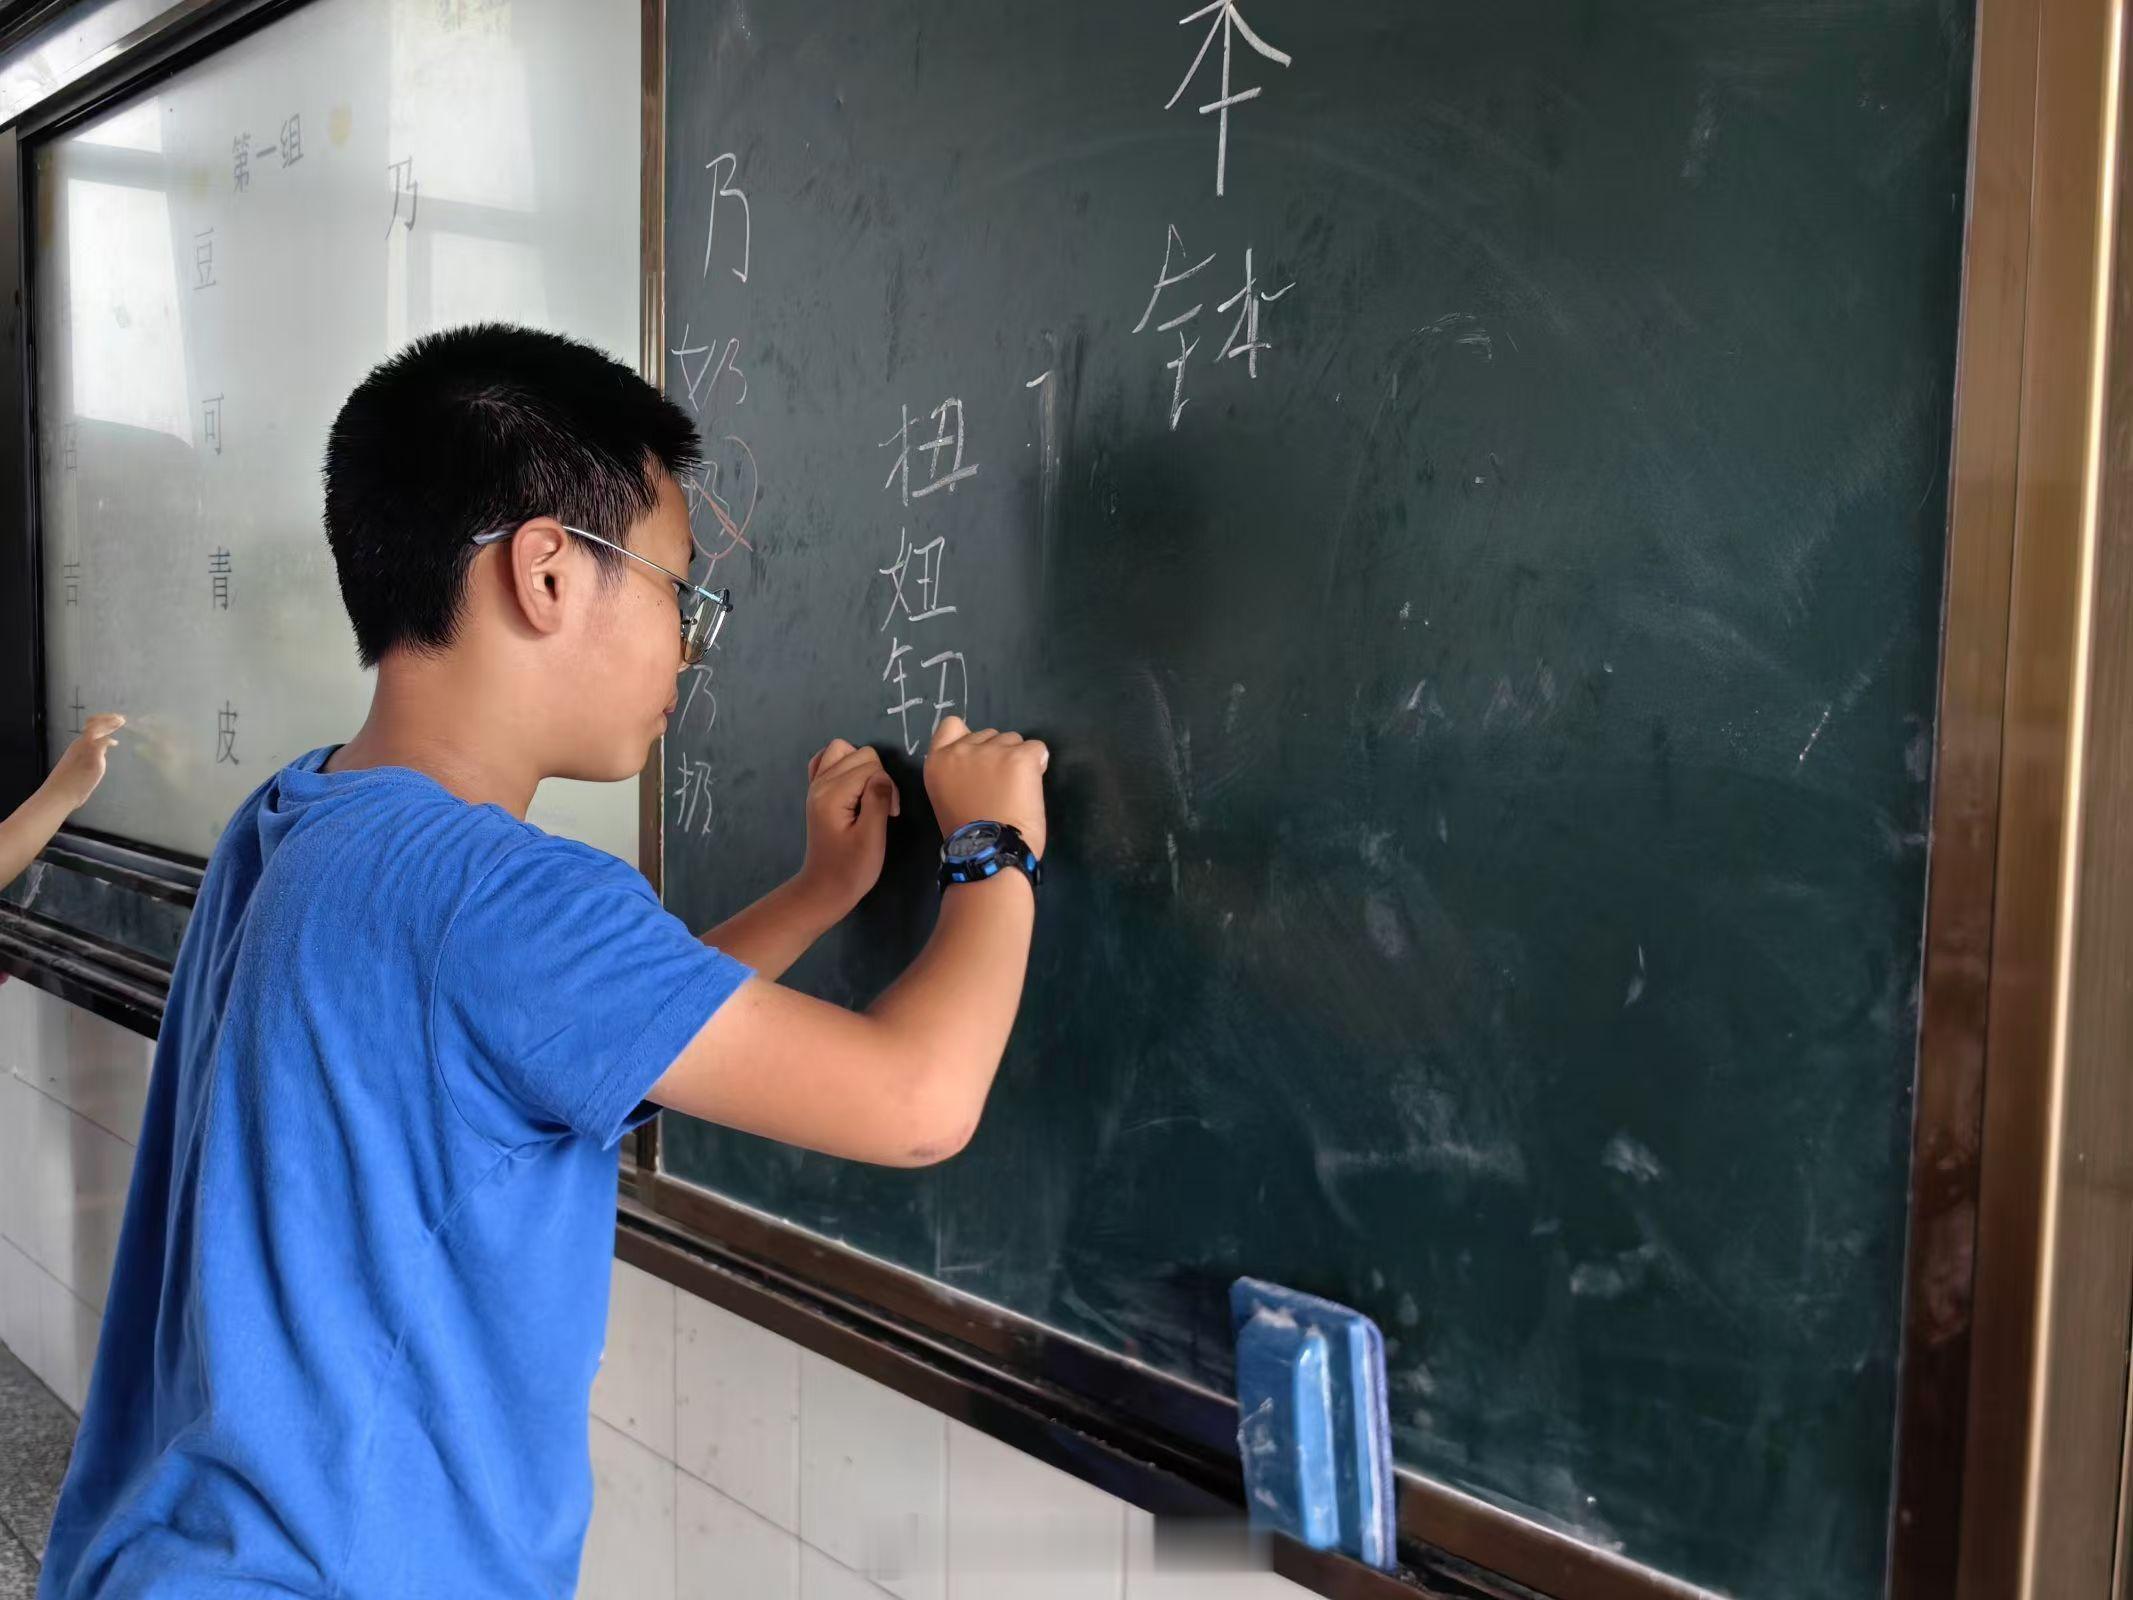 第一组
乃
豆
可
青
皮
吉
土
乃
奶
乃
扔
扭
妞
钮
本
钵